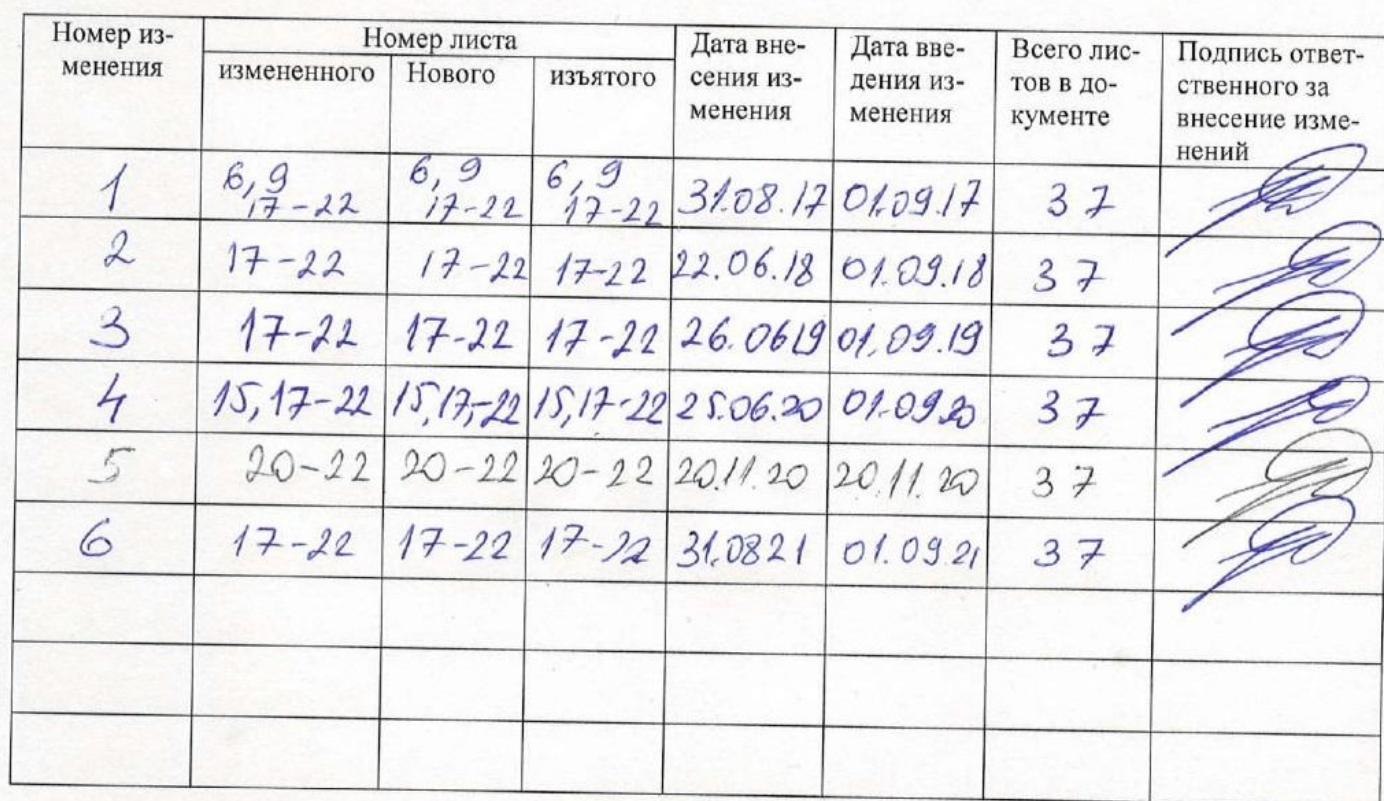 Номер из-
менения
Номер листа
измененного Нового изъятого
Дата вне-
сения из-
менения
Дата вве-
дения из-
менения
Всего лис-
тов в до-
кументе
Подпись ответ-
ственного за
внесение изме-
нений
1 6, 9 6, 9 6, 9 31.08.17 01.09.17 37
17-22 17-22 17-22
2 17-22 17-22 17-22 22.06.18 01.09.18 37
3 17-22 17-22 17-22 26.0619 01.09.19 37
4 15,17-22 15,17-22 15,17-22 25.06.20 01.09.20 37
5 20-22 20-22 20-22 20.11.20 20.11.20 37
6 17-22 17-22 17-22 31.0821 01.09.21 37